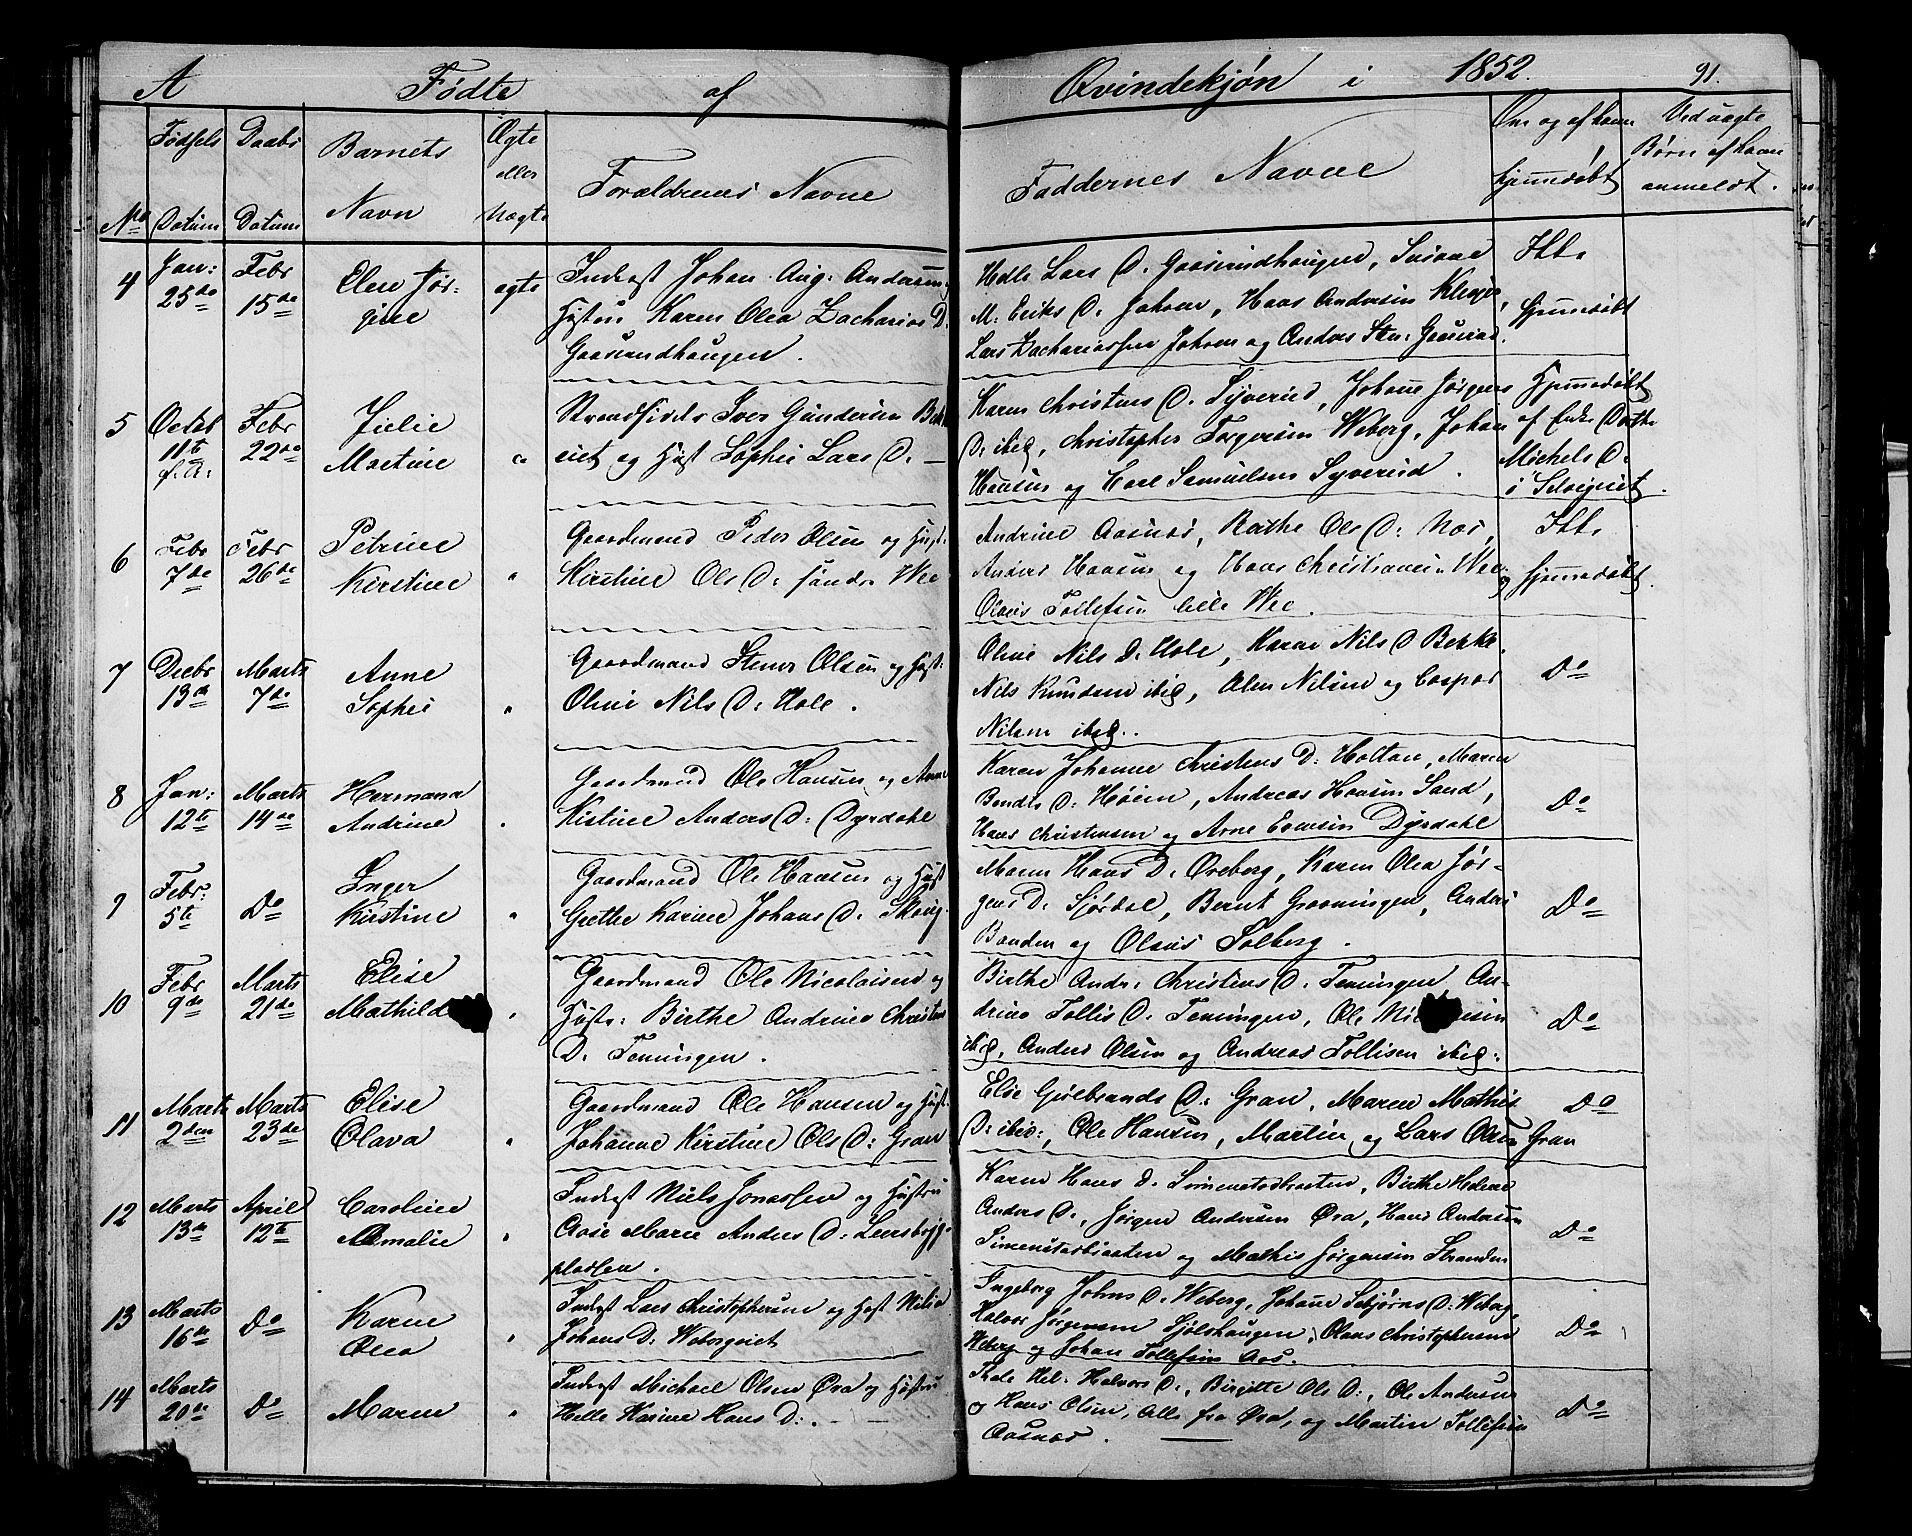 A Fødte af Qvindekjøn i 1852. 91.
No Fødsels Datum Daabs Datum Barnets Navn Ægte eller Uægte Forældrenes Navne Faddernes Navne Om og af hvem hjemmedøbt Ved uægte Børn af hvem anmeldt.
4 Jan: 25de Febr 15de Elen Jør-
gine ægte
Inderst Johan Aug. Andersen og
Hustru Karen Olea Zacharias D.
Gaaserudhaugen.
Helle Lars D. Gaaserudhaugen,
M. Eriks D. Johnsr, Hans Andersen
Lars Zachariassen Johnsrn og Anders Sten:
Ikke
hjemmedøbt
5 Octbr 11te f. A: Febr 22de Julie
Martine "
Strandsidder Iver Gundersen
og Hust Sophie Lars D. —
Karen Christens D. Syverud, Johanne Jørgens
D. ibid, Christopher Torgersen Weberg, Johan
Hansen og Carl Samuelsen Syverud.
Hjemmedøbt
af Enke Dorthe
Michels D.
i Selvigriet.
6 Febr 7de Febr 26de Petrine
Kirstine "
Gaardmand Peder Olsen og Hust:
Kirstine Ols D: søndr Wee
Andrine Aasnæs, Kathe Ols D: Næs,
Anders Hansen og Hans Christiansen Wee og
Olaus Tollefsen lille Wee.
Ikke
hjemmedøbt.
7 Decbr 13de Marts 7de Anne
Sophie "
Gaardmand Stener Olsen og Hust:
Oline Nils D: Hole.
Oline Nils D. Hole, Karen Nils D Bekke,
Nils Knudsen ibid, Olen Nilsen og Casper
Nilsen ibid.
Do
8 Jan: 12te Marts 14de Hermana
Andrine "
Gaardmand Ole Hansen og Anne
Kistine Anders D: Dyrdahl
Karen Johanne Christens D: Holtan, Maren
Bendts D: Høien, Andreas Hansen Sand,
Hans Christensen og Arne Evensen Dyrdahl
Do
9 Febr: 5te Do Inger
Kirstine "
Gaardmand Ole Hansen og Hust
Grethe Karine Johans D: Skoug.
Maren Hans D. Øreberg, Karen Olea Jør-
gens D. Sjørdal, Bernt Grønningen, Anders
Banden og Olaus Solberg.
Do
10 Febr 9de Marts 21de Elise
Mathilde "
Gaardmand Ole Nicolaisen og
Hustr: Birthe Andrine Christens
D. Temingen.
Birthe Andr. Christens D. Temingen, An-
drine Tollis D. Temingen, Ole
ibid, Anders Olsen og Andreas Tollisen ibid.
Do
11 Marts 2den Marts 23de Elise
Olava "
Gaardmand Ole Hansen og Hust.
Johanne Kirstine Ols D: Gran
Elise Gulbrands D: Gran, Maren Mathis
D: ibid:, Ole Hansen, Martin og Lars Olsen Gran
Do
12 Marts 13de April 12te Caroline
Amalie "
Inderst Niels Jonassen og Hustru
Aase Marie Anders D:
pladsen.
Karen Hans D. Simenstadbraaten, Birthe Helene
Anders D., Jørgen Andersen Øra, Hans Andersen
Simenstadbraaten og Mathis Jørgensen Stranden
Do
13 Marts 16de Do Karen
Olea "
Inderst Lars Christophersen og Hust
Johans D: Webergeiet
Ingeborg Johns D. Weberg, Johanne D: Weberg,
Halvor Jørgensen Sjølshaugen, Olaus Christophersen
Weberg og Johan Tollefsen Aas.
Do
14 Marts 20de Do Maren "
Inderst Michael Olsen Øra og Hustru
Helle Karine Hans D:.
Thale Hel: Halvors D., Birgitte Ols D:, Ole Andersen
og Hans Olsen, alle fra Øra, og Martin Tollefsen
Aasnæs.
Do